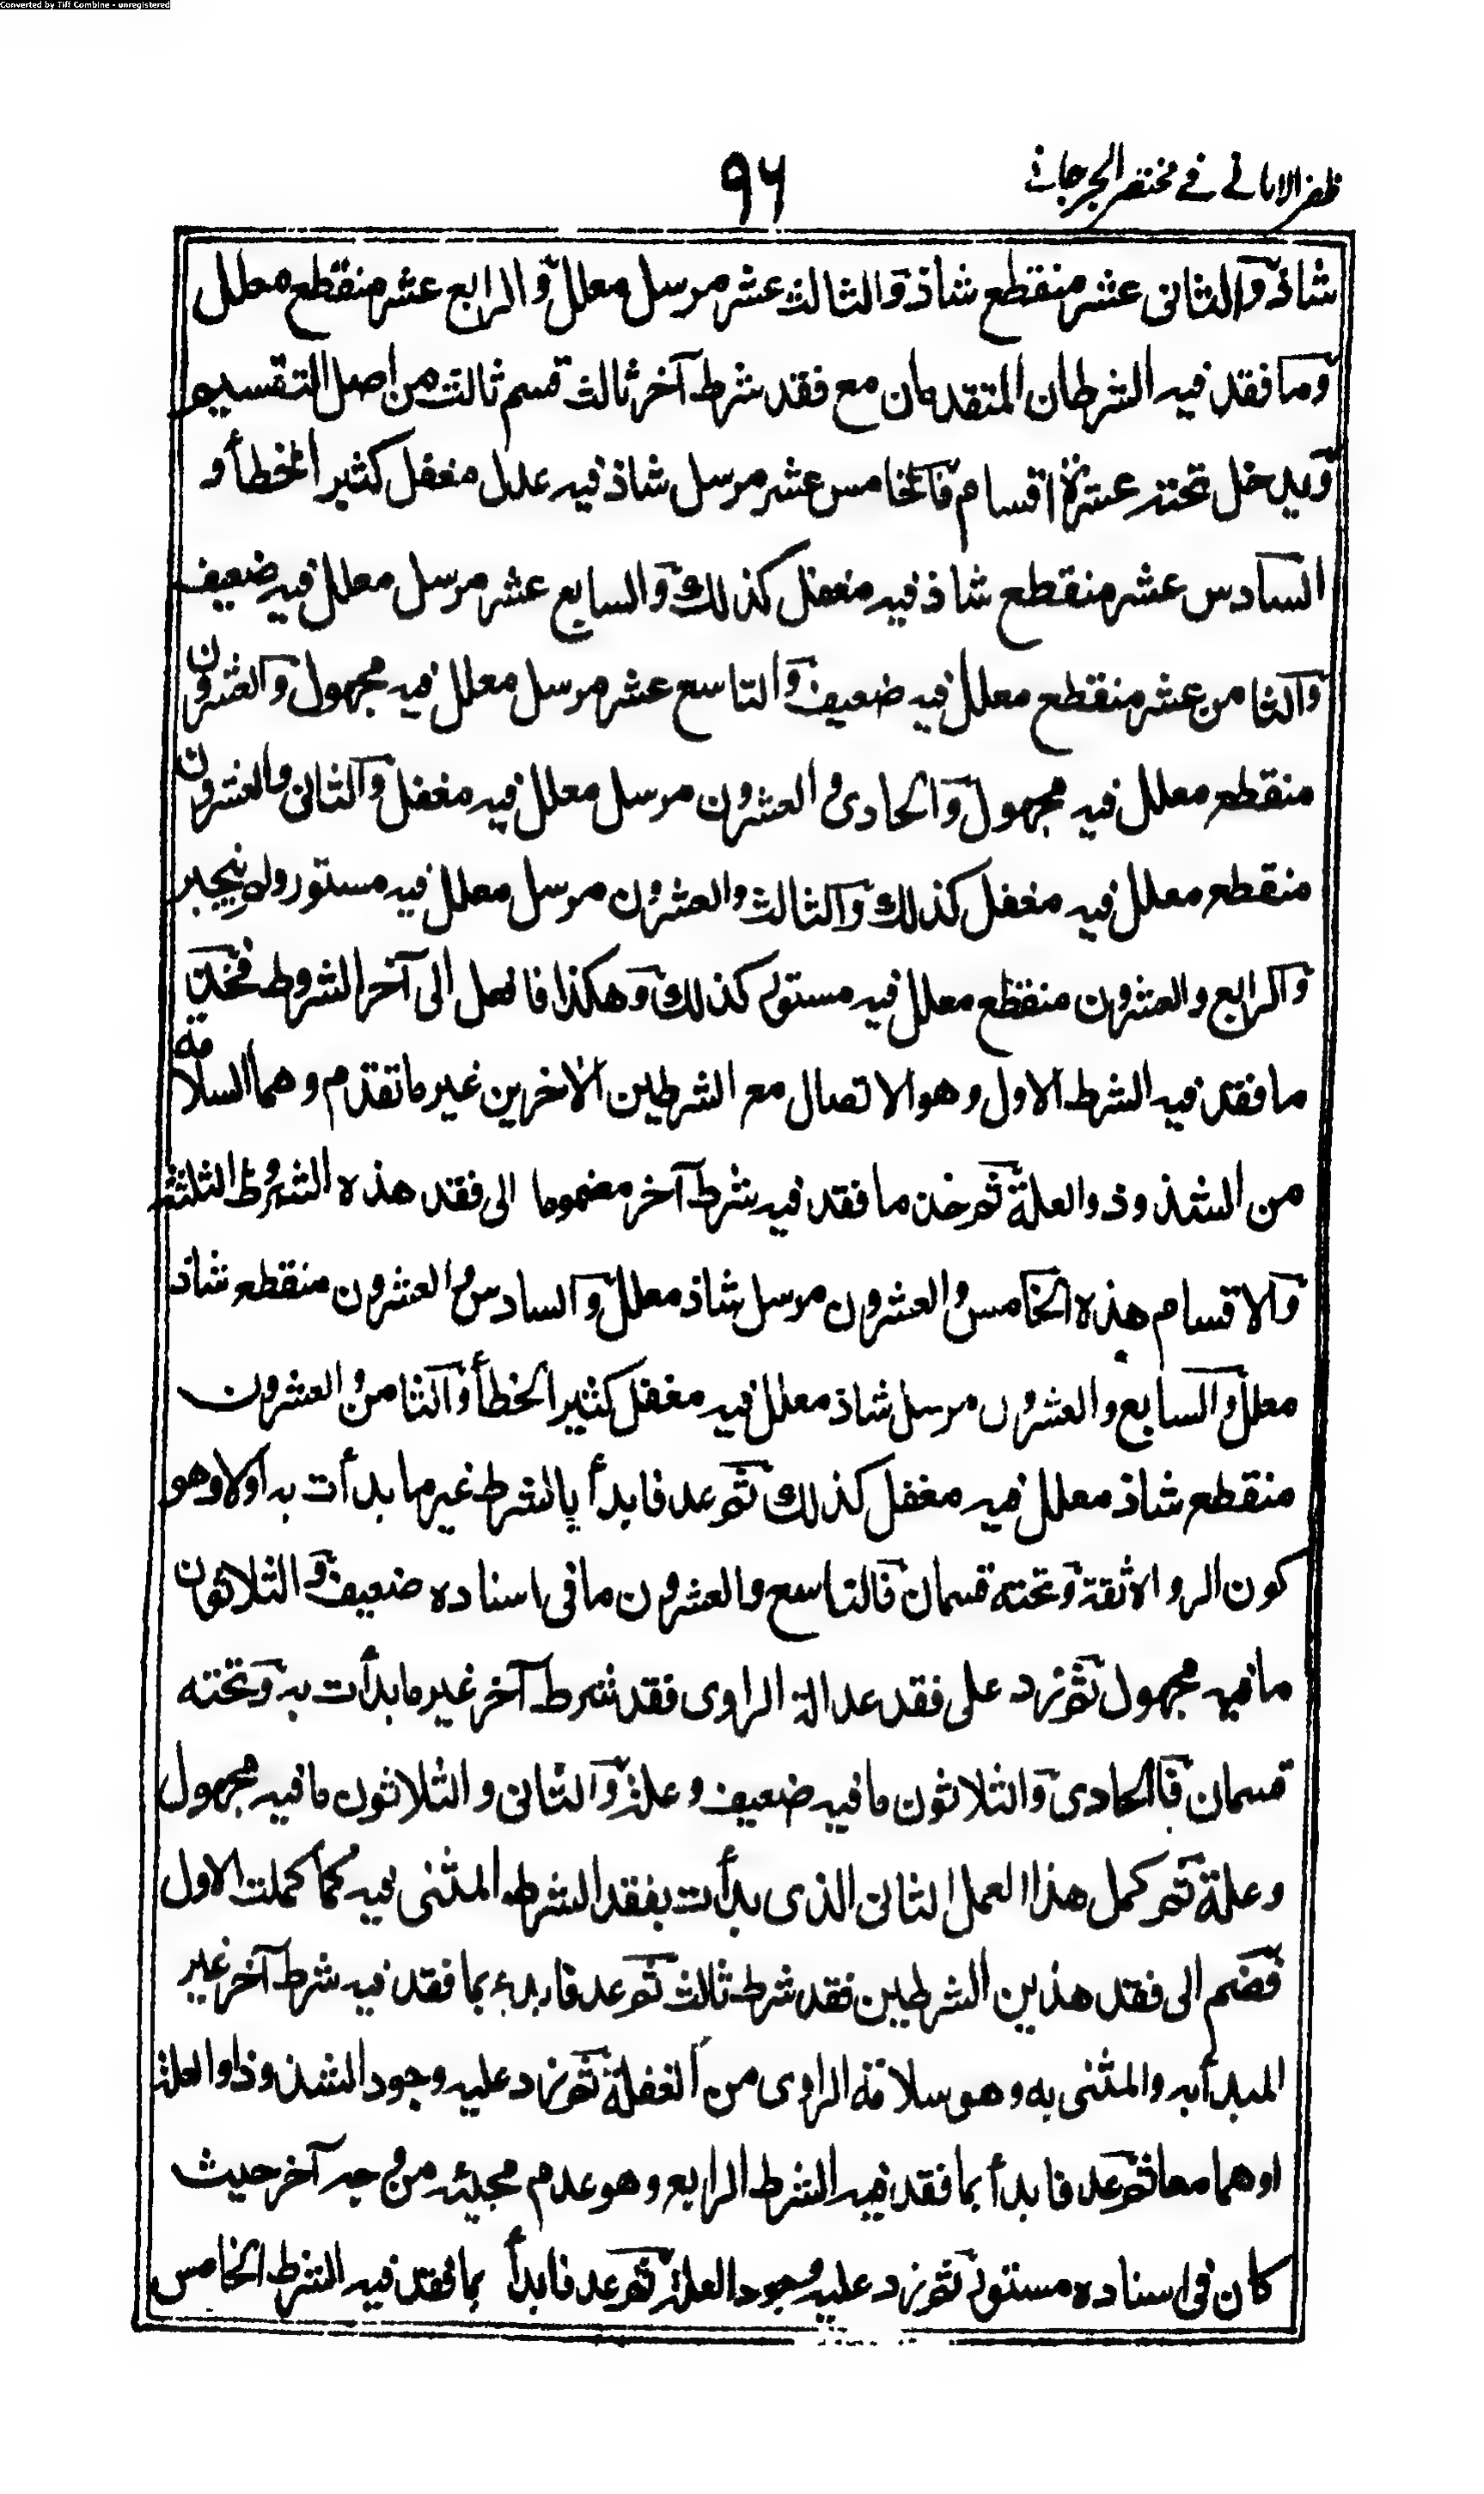 Converted by Tiff Combine - unregistered
ظفر الامانى فى مختصر الجرجانى
٩٦
شاذ والثانى عشر منقطع شاذ والثالث عشر مرسل معلل والرابع عشر منقطع معلل
وما فقد فيه الشرطان المتقدمان مع فقد شرط آخر ثالث قسم ثالث من اصل التقسيم
ويدخل تحته عشرة اقسام فالخامس عشر مرسل شاذ فيه علل مغفل كثير الخطأ و
السادس عشر منقطع شاذ فيه مغفل كذلك والسابع عشر مرسل معلل فيه ضعيف
والثامن عشر منقطع معلل فيه ضعيف والتاسع عشر مرسل معلل فيه مجهول والعشرون
منقطع معلل فيه مجهول والحادى والعشرون مرسل معلل فيه مغفل والثانى والعشرون
منقطع معلل فيه مغفل كذلك والثالث والعشرون مرسل معلل فيه مستور ولم ينجبر
والرابع والعشرون منقطع معلل فيه مستور كذلك وهكذا فافعل الى آخر الشروط فخذ
ما فقد فيه الشرط الاول وهو الاتصال مع الشرطين الآخرين غير ما تقدم وهما السلامة
من الشذوذ والعلة ثم خذ ما فقد فيه شرط آخر مضموما الى فقد هذه الشروط الثلثة
والاقسام هذه الخامس والعشرون مرسل شاذ معلل والسادس والعشرون منقطع شاذ
معلل والسابع والعشرون مرسل شاذ معلل فيه مغفل كثير الخطأ والثامن والعشرون
منقطع شاذ معلل فيه مغفل كذلك ثم عد فابدأ بالشرط غير ما بدأت به اولا وهو
كون الرواة ثقة وتحته قسمان فالتاسع والعشرون ما فى اسناده ضعيف والثلاثون
ما فيه مجهول ثم زد على فقد عدالة الراوى فقد شرط آخر غير ما بدأت به وتحته
قسمان فالحادى والثلاثون ما فيه ضعيف وعلة والثانى والثلاثون ما فيه مجهول
وعلة ثم كمل هذا العمل الثانى الذى بدأت بفقد الشرط المثنى فيه كما كملت الاول
فضم الى فقد هذين الشرطين فقد شرط ثالث ثم عد فابدء بما فقد فيه شرط آخر غير
المبدأ به والمثنى به وهو سلامة الراوى من الغفلة ثم زد عليه وجود الشذوذ او العلة
او هما معا ثم عد فابدأ بما فقد فيه الشرط الرابع وهو عدم مجيئه من وجه آخر حيث
كان فى اسناده مستور ثم زد عليه وجود العلة ثم عد فابدأ بما فقد فيه الشرط الخامس